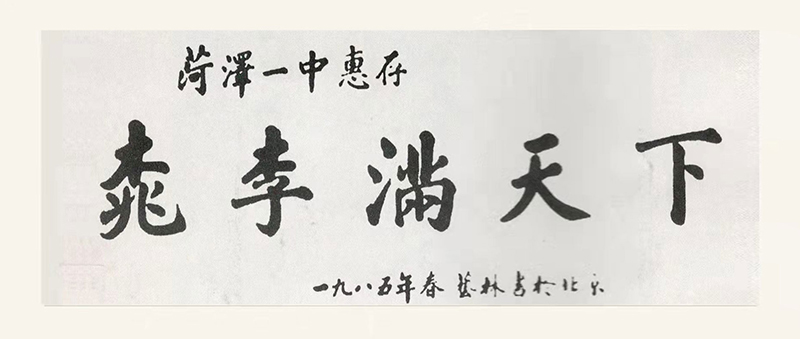 菏澤一中惠存
桃李满天下
一九八五年春 藝林書於北京